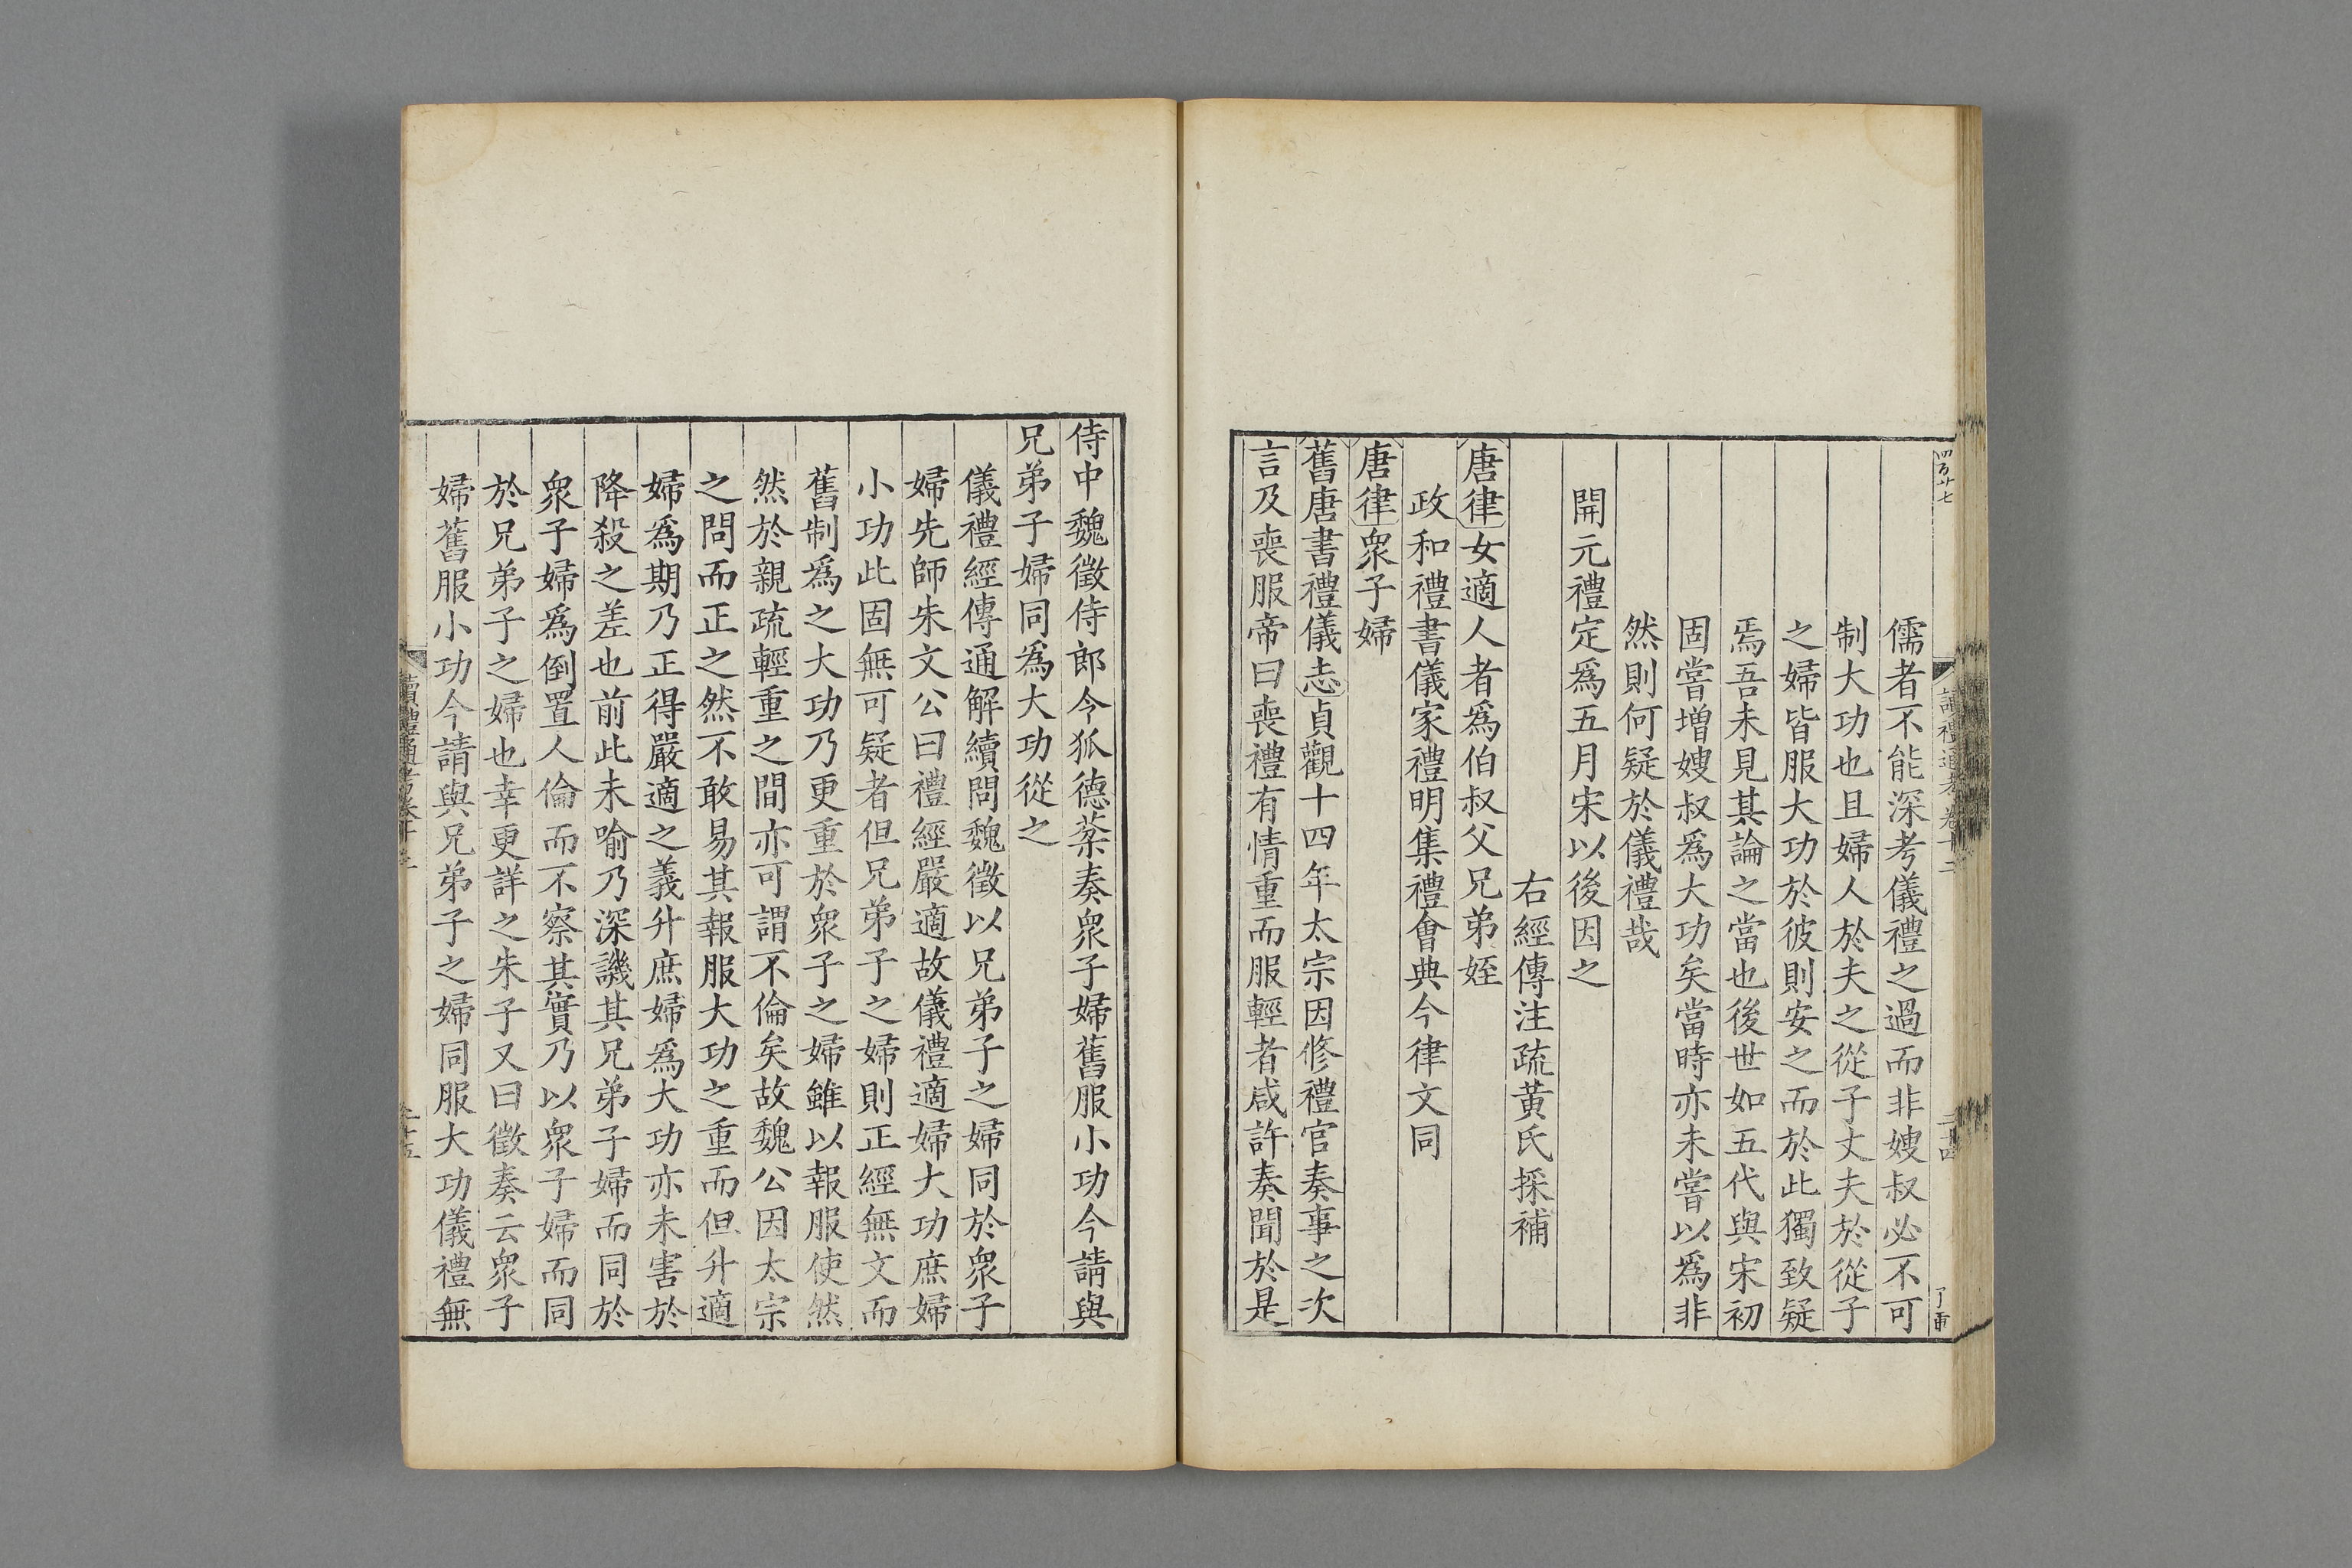 四百廿七
讀禮通考卷十二
二十四
儒者不能深考儀禮之過而非嫂叔必不可
制大功也且婦人於夫之從子丈夫於從子
之婦皆服大功於彼則安之而於此獨致疑
焉吾未見其論之當也後世如五代與宋初
固嘗增嫂叔爲大功矣當時亦未嘗以爲非
然則何疑於儀禮哉
開元禮定爲五月宋以後因之
右經傳注疏黃氏採補
唐律女適人者爲伯叔父兄弟姪
政和禮書儀家禮明集禮會典今律文同
唐律衆子婦
舊唐書禮儀志貞觀十四年太宗因修禮官奏事之次
言及喪服帝曰喪禮有情重而服輕者咸許奏聞於是
侍中魏徵侍郎令狐德棻奏衆子婦舊服小功今請與
兄弟子婦同爲大功從之
儀禮經傳通解續問魏徵以兄弟子之婦同於衆子
婦先師朱文公曰禮經嚴適故儀禮適婦大功庶婦
小功此固無可疑者但兄弟子之婦則正經無文而
舊制爲之大功乃更重於衆子之婦雖以報服使然
然於親疏輕重之間亦可謂不倫矣故魏公因太宗
之問而正之然不敢易其報服大功之重而但升適
婦爲期乃正得嚴適之義升庶婦爲大功亦未害於
降殺之差也前此未喻乃深譏其兄弟子婦而同於
衆子婦爲倒置人倫而不察其實乃以衆子婦而同
於兄弟子之婦也幸更詳之朱子又曰徵奏云衆子
婦舊服小功今請與兄弟子之婦同服大功儀禮無
讀禮通考卷十二
二十五